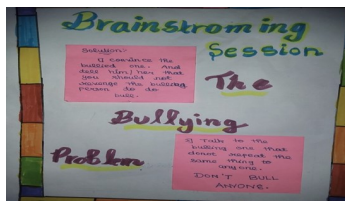 Brainstroming
Session
Solution:-
1) convince the
bullied one. And
tell him/her that
you should not
revenge the bullying
person do do
bull.
The
Bullying
Problem
2) Talk to the
bulling one that
donot repeat the
same thing to
anyone.
DON'T BULL
ANYONE.